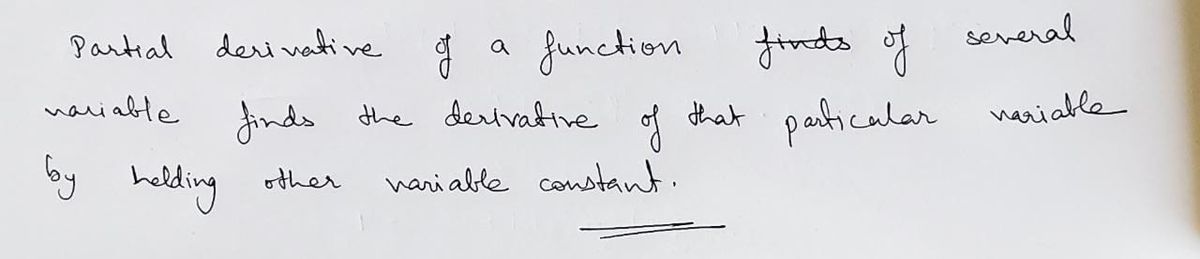 Partial derivative of a function finds of several
variable finds the derivative of that particular variable
by holding other variable constant.